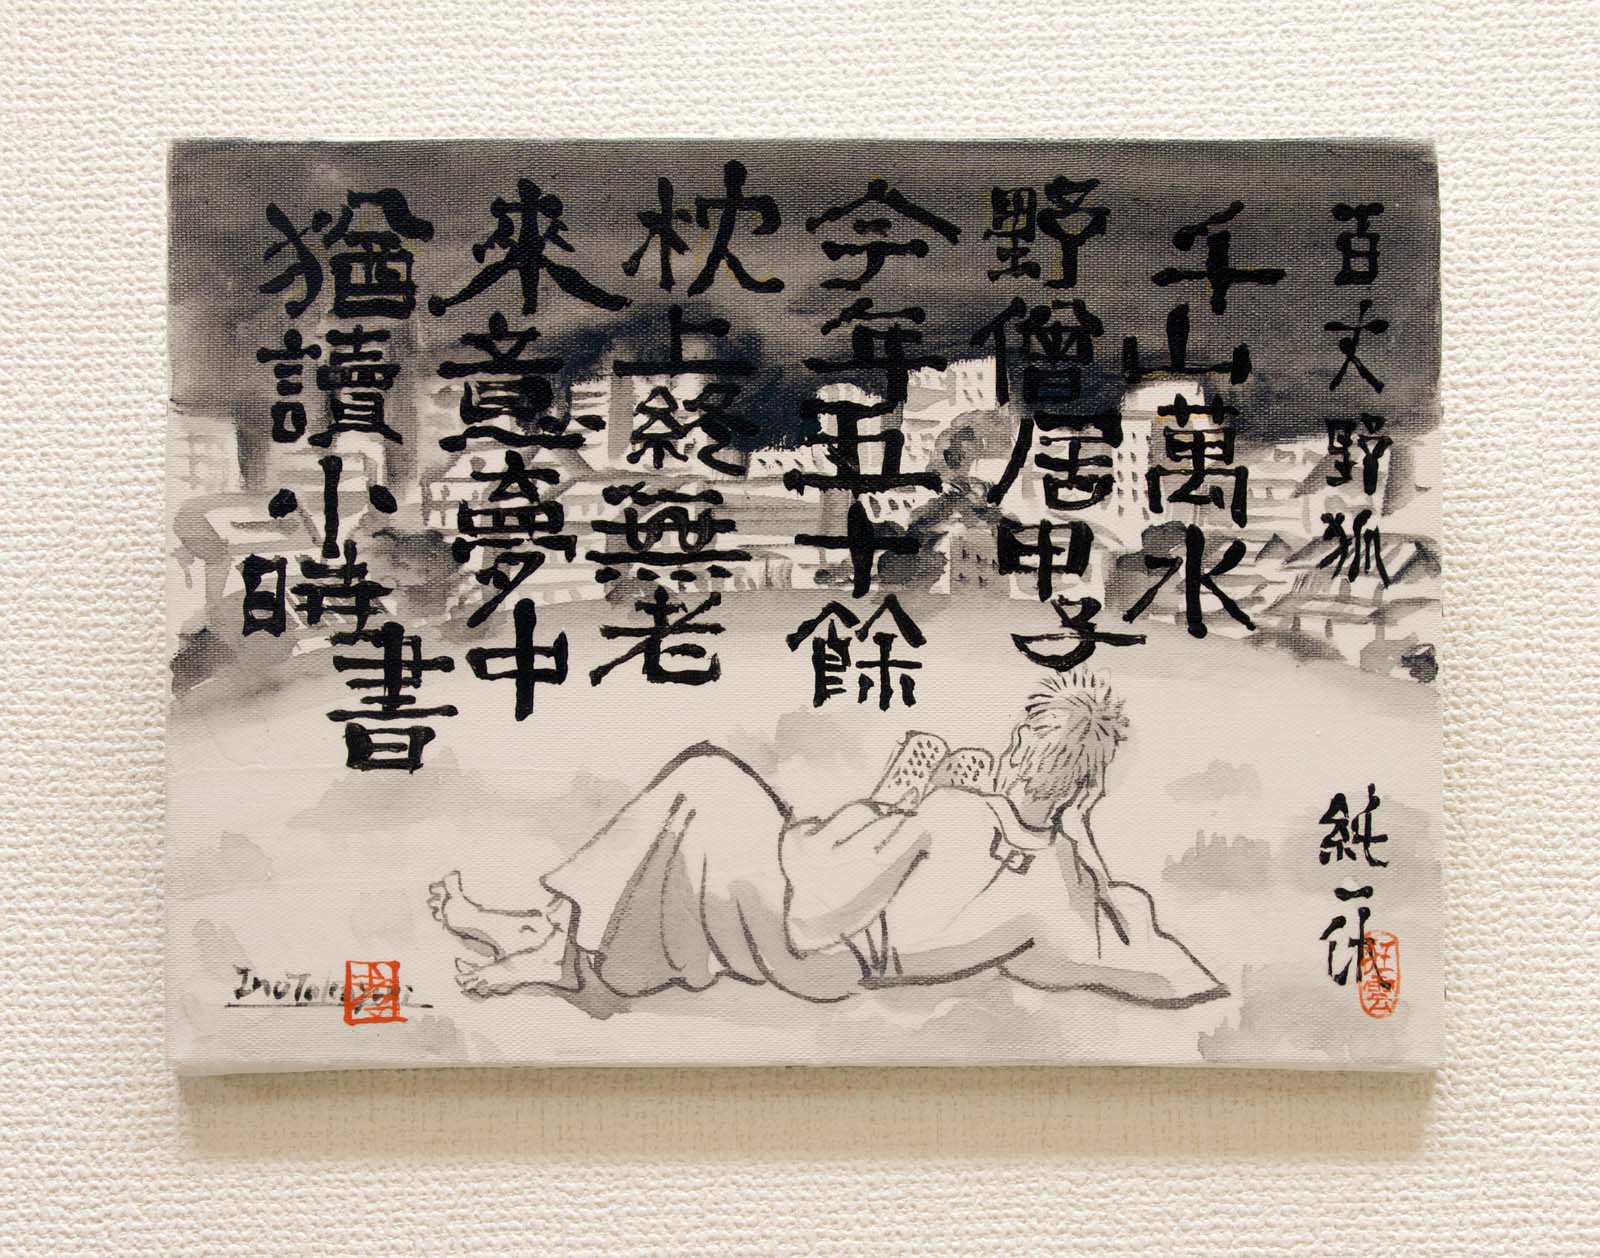 百丈野狐
千山萬水
野僧居甲子
今年五十餘
枕上終無老
來意夢中
猶讀小時書
純一休
狂雲